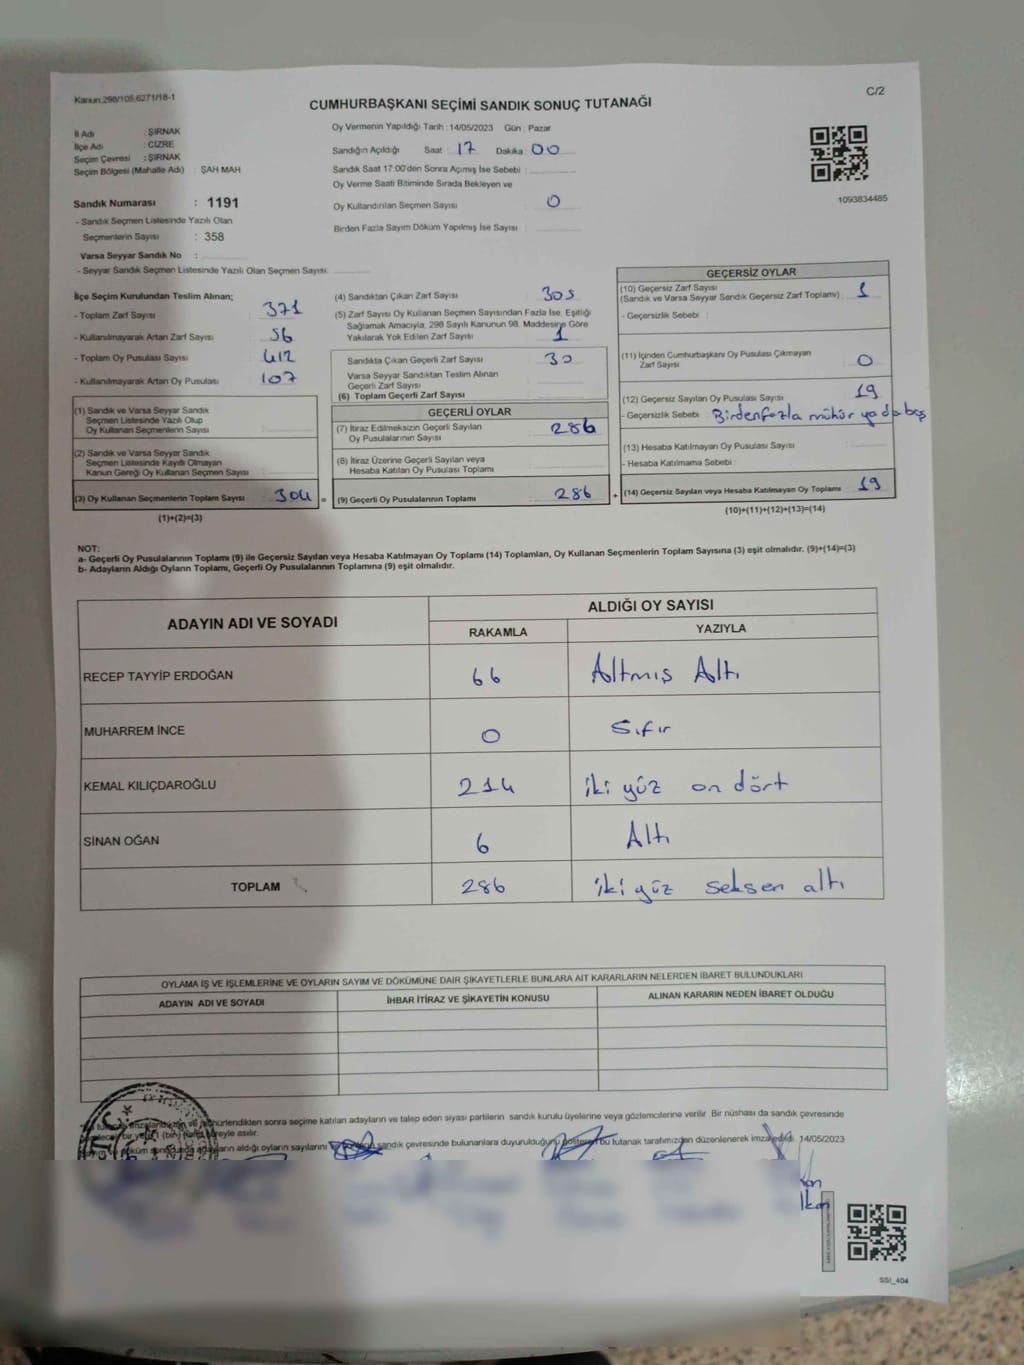 Kanun:298/105,6271/18-1
C/2
CUMHURBAŞKANI SEÇİMİ SANDIK SONUÇ TUTANAĞI
İl Adı : ŞIRNAK
İlçe Adı : CİZRE
Seçim Çevresi : ŞIRNAK
Seçim Bölgesi (Mahalle Adı) : ŞAH MAH
Sandık Numarası : 1191
- Sandık Seçmen Listesinde Yazılı Olan
Seçmenlerin Sayısı : 358
Varsa Seyyar Sandık No :
- Seyyar Sandık Seçmen Listesinde Yazılı Olan Seçmen Sayısı:
Oy Vermenin Yapıldığı Tarih : 14/05/2023 Gün : Pazar
Sandığın Açıldığı Saat : 17 Dakika : 00
Sandık Saat 17.00'den Sonra Açımış İse Sebebi :
Oy Verme Saati Bitiminde Sırada Bekleyen ve
Oy Kullandırılan Seçmen Sayısı : 0
Birden Fazla Sayım Döküm Yapılmış İse Sayısı :
1093834485
İlçe Seçim Kurulundan Teslim Alınan;
- Toplam Zarf Sayısı : 371
- Kullanılmayarak Artan Zarf Sayısı : 56
- Toplam Oy Pusulası Sayısı : 412
- Kullanılmayarak Artan Oy Pusulası : 107
(1) Sandık ve Varsa Seyyar Sandık
Seçmen Listesinde Yazılı Olup
Oy Kullanan Seçmenlerin Sayısı :
(2) Sandık ve Varsa Seyyar Sandık
Seçmen Listesinde Kayıtlı Olmayan
Kanun Gereği Oy Kullanan Seçmen Sayısı :
(3) Oy Kullanan Seçmenlerin Toplam Sayısı : 304 =
(1)+(2)=(3)
(4) Sandıktan Çıkan Zarf Sayısı : 305
(5) Zarf Sayısı Oy Kullanan Seçmen Sayısından Fazla İse, Eşitliği
Sağlamak Amacıyla, 298 Sayılı Kanunun 98. Maddesine Göre
Yakılarak Yok Edilen Zarf Sayısı : 1
Sandıkta Çıkan Geçerli Zarf Sayısı : 30
Varsa Seyyar Sandıktan Teslim Alınan
Geçerli Zarf Sayısı :
(6) Toplam Geçerli Zarf Sayısı
GEÇERLİ OYLAR
(7) İtiraz Edilmeksizin Geçerli Sayılan
Oy Pusulalarının Sayısı : 286
(8) İtiraz Üzerine Geçerli Sayılan veya
Hesaba Katılan Oy Pusulası Toplamı :
(9) Geçerli Oy Pusulalarının Toplamı : 286 +
GEÇERSİZ OYLAR
(10) Geçersiz Zarf Sayısı
(Sandık ve Varsa Seyyar Sandık Geçersiz Zarf Toplamı) : 1
- Geçersizlik Sebebi :
(11) İçinden Cumhurbaşkanı Oy Pusulası Çıkmayan
Zarf Sayısı : 0
(12) Geçersiz Sayılan Oy Pusulası Sayısı : 19
- Geçersizlik Sebebi : Birden fazla mühür ya da boş
(13) Hesaba Katılmayan Oy Pusulası Sayısı :
- Hesaba Katılmama Sebebi :
(14) Geçersiz Sayılan veya Hesaba Katılmayan Oy Toplamı : 19
(10)+(11)+(12)+(13)=(14)
NOT:
a- Geçerli Oy Pusulalarının Toplamı (9) ile Geçersiz Sayılan veya Hesaba Katılmayan Oy Toplamı (14) Toplamları, Oy Kullanan Seçmenlerin Toplam Sayısına (3) eşit olmalıdır. (9)+(14)=(3)
b- Adayların Aldığı Oyların Toplamı, Geçerli Oy Pusulalarının Toplamına (9) eşit olmalıdır.
ADAYIN ADI VE SOYADI ALDIĞI OY SAYISI
RAKAMLA YAZIYLA
RECEP TAYYİP ERDOĞAN 66 Altmış Altı
MUHARREM İNCE 0 Sıfır
KEMAL KILIÇDAROĞLU 214 iki yüz on dört
SİNAN OĞAN 6 Altı
TOPLAM 286 iki yüz seksen altı
OYLAMA İŞ VE İŞLEMLERİNE VE OYLARIN SAYIM VE DÖKÜMÜNE DAİR ŞİKAYETLERLE BUNLARA AİT KARARLARIN NELERDEN İBARET BULUNDUKLARI
ADAYIN ADI VE SOYADI İHBAR İTİRAZ VE ŞİKAYETİN KONUSU ALINAN KARARIN NEDEN İBARET OLDUĞU
mühürlendikten sonra seçime katılan adayların ve talep eden siyasi partilerin sandık kurulu üyelerine veya gözlemcilerine verilir. Bir nüshası da sandık çevresinde
bir yere (bir) hafta süreyle asılır.
adayların aldığı oyların sayılarını sandık çevresinde bulunanlara duyurulduğunu gösteren bu tutanak tarafımızdan düzenlenerek imza edildi. 14/05/2023
SSI_404